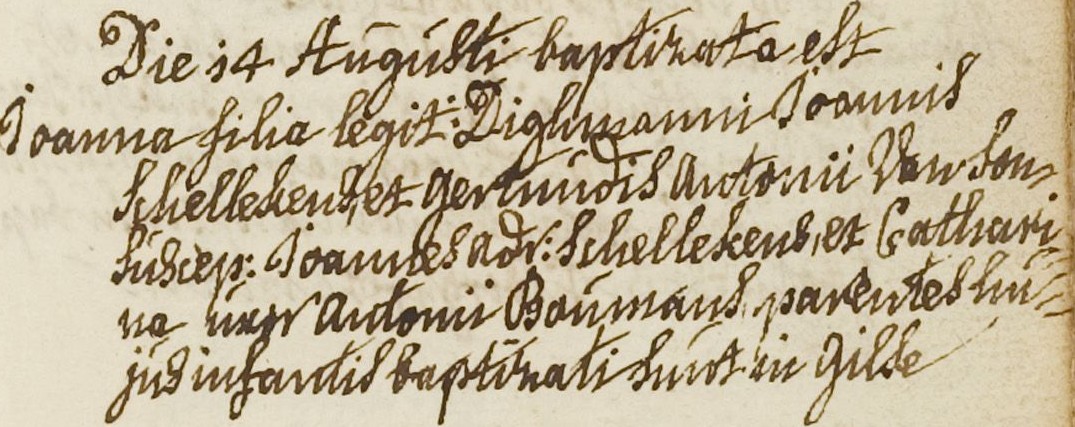 Die 14 Augusti baptizata est
Joanna filia legit: Dighmanni Joannis
Schellekens, et Gertrudis Antonii Van Son,
Suscep: Joannes Adr: Schellekens, et Cathari-
na uxor Antonii Boumans, parentes hu-
jus infantis baptizati sunt in Gilse